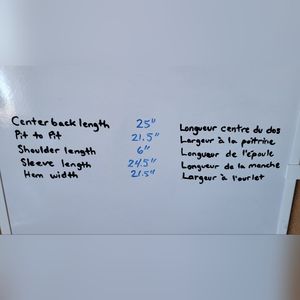 Center back length 25" Longueur centre du dos
Pit to Pit 21.5" Largeur à la poitrine
Shoulder length 6" Longueur de l'épaule
Sleeve length 24.5" Longueur de la manche
Hem width 21.5" Largeur à l'ourlet